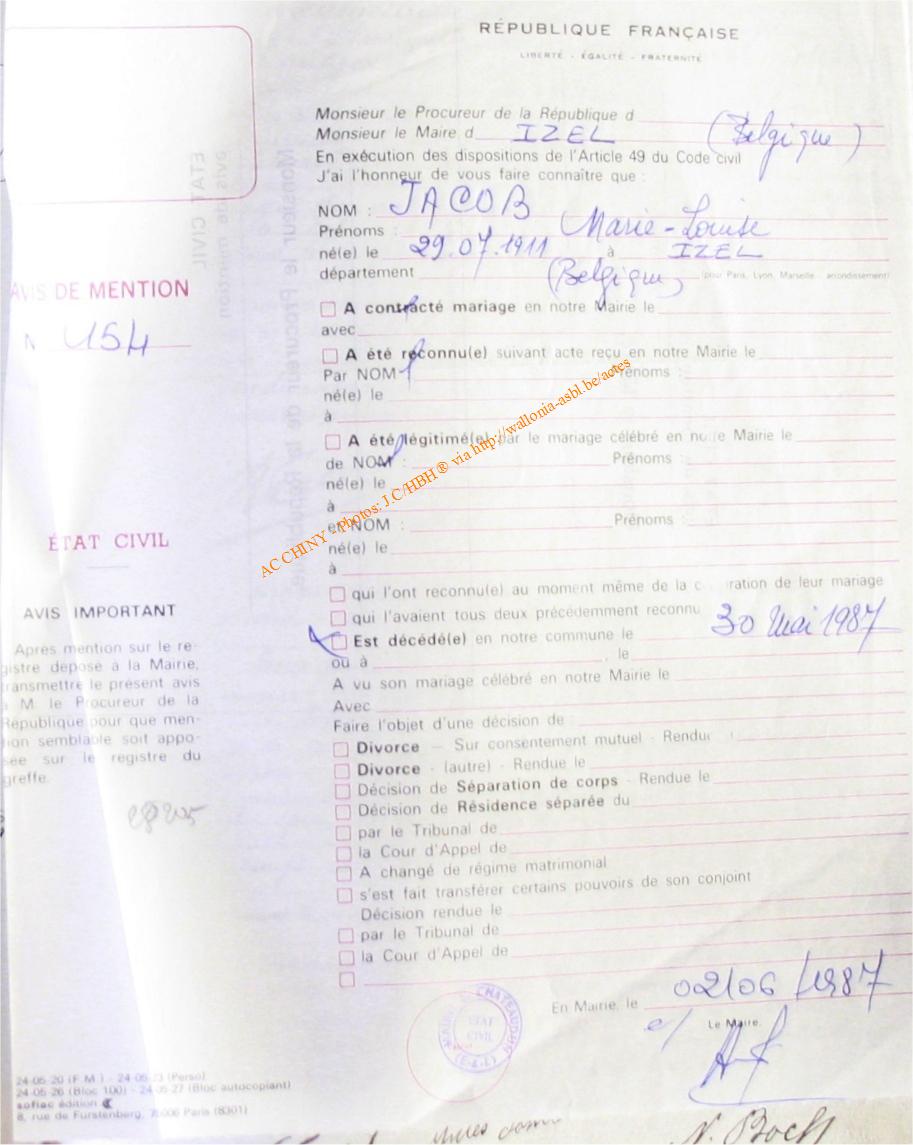 RÉPUBLIQUE FRANÇAISE
LIBERTÉ - ÉGALITÉ - FRATERNITÉ
Monsieur le Procureur de la République d
Monsieur le Maire d IZEL (Belgique)
En exécution des dispositions de l'Article 49 du Code civil
J'ai l'honneur de vous faire connaître que :
NOM : JACOB
Prénoms : Marie-Louise
né(e) le 29.07.1911 à IZEL
département (Belgique) (pour Paris, Lyon, Marseille : arrondissement)
AVIS DE MENTION
N 154
A contracté mariage en notre Mairie le
avec
A été reconnu(e) suivant acte reçu en notre Mairie le
Par NOM : Prénoms :
né(e) le
à
A été légitimé(e) par le mariage célébré en notre Mairie le
de NOM : Prénoms :
né(e) le
à
et NOM : Prénoms :
né(e) le
à
AC CHINY - Photos: J.C/HBH® via http://wallonia-asbl.be/actes
ÉTAT CIVIL
qui l'ont reconnu(e) au moment même de la c ration de leur mariage
qui l'avaient tous deux précédemment reconnu
Est décédé(e) en notre commune le 30 Mai 1987
ou à , le
A vu son mariage célébré en notre Mairie le
Avec
Faire l'objet d'une décision de
Divorce - Sur consentement mutuel - Rendu
Divorce - (autre) - Rendue le
Décision de Séparation de corps - Rendue le
Décision de Résidence séparée du
par le Tribunal de
la Cour d'Appel de
A changé de régime matrimonial
s'est fait transférer certains pouvoirs de son conjoint
Décision rendue le
par le Tribunal de
la Cour d'Appel de
AVIS IMPORTANT
Après mention sur le re-
gistre déposé à la Mairie,
transmettre le présent avis
à M. le Procureur de la
République pour que men-
tion semblable soit appo-
sée sur le registre du
greffe.
En Mairie, le 02/06/1987
Le Maire,
CHATEAUDUN
ETAT
CIVIL
(E-&-L)
24-05-20 (F M ) - 24-05-23 (Perso)
24-05-26 (Bloc 100) - 24-05-27 (Bloc autocopiant)
sofiac édition
8, rue de Furstenberg, 75006 Paris (8301)
N. Boch